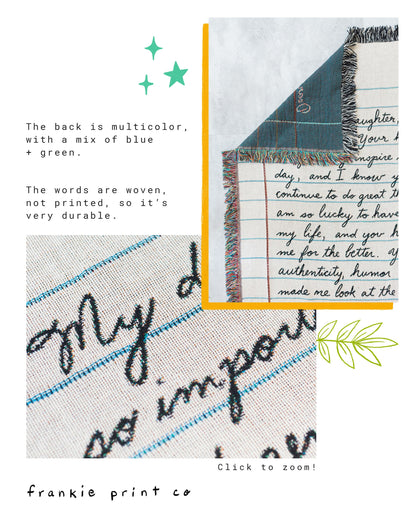 The back is multicolor,
with a mix of blue
+ green.
The words are woven,
not printed, so it's
very durable.
aughter,
Your h
inspire
day, and I know y
continue to do great t
am so lucky to have
my life, and you h
me for the better. Y
authenticity, humor
made me look at the
My d
so impor
Click to zoom!
frankie print co